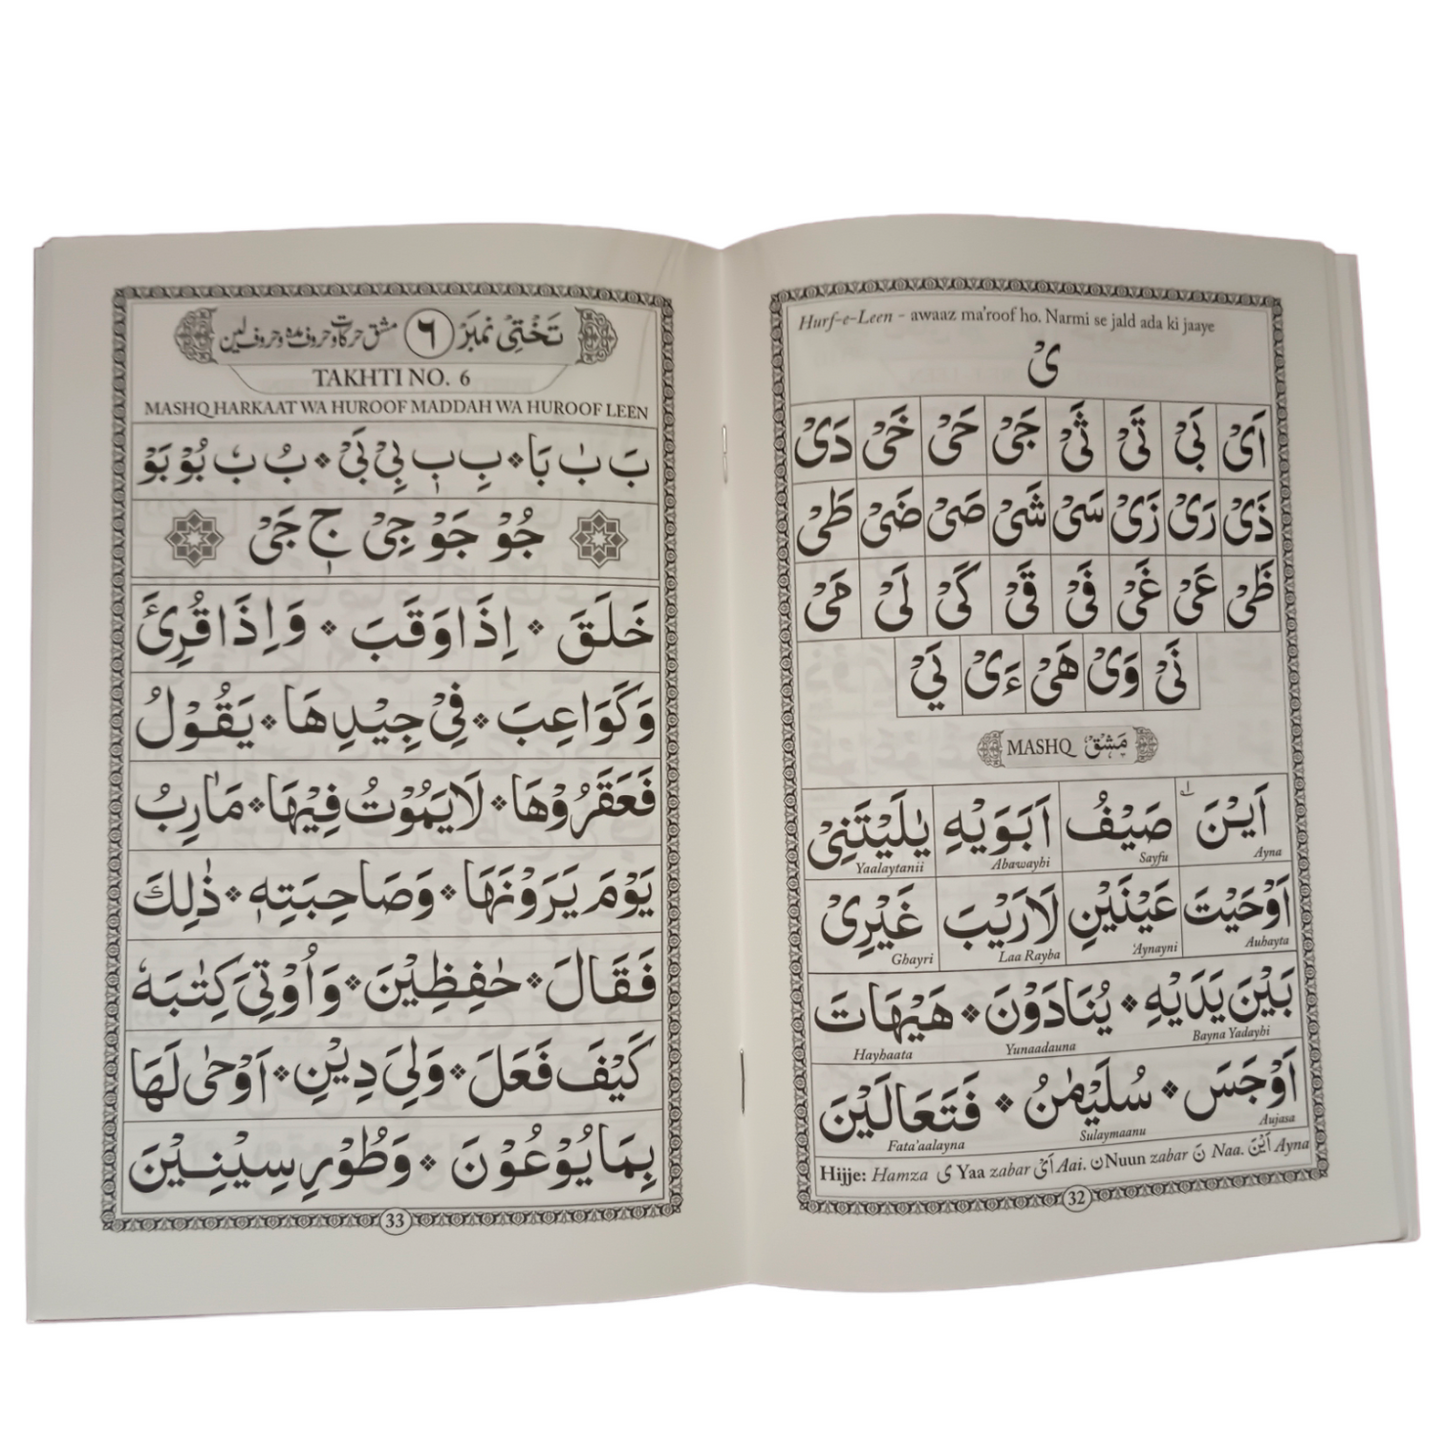 Hurf-e-Leen – awaaz ma'roof ho. Narmi se jald ada ki jaaye
یْ
اَیْ بَیْ تَیْ ثَیْ جَیْ حَیْ خَیْ دَیْ
ذَیْ رَیْ زَیْ سَیْ شَیْ صَیْ ضَیْ طَیْ
ظَیْ عَیْ غَیْ فَیْ قَیْ کَیْ لَیْ مَیْ
نَیْ وَیْ هَیْ ءَیْ یَیْ
MASHQ مَشْق
اَیْنَ صَیْفُ اَبَوَیْهِ یٰلَیْتَنِیْ
Ayna Sayfu Abawayhi Yaalaytanii
اَوْحَیْتَ عَیْنَیْنِ لَارَیْبَ غَیْرِیْ
Auhayta 'Aynayni Laa Rayba Ghayri
بَیْنَ یَدَیْهِ ❖ یُنَادَوْنَ ❖ هَیْهَاتَ
Bayna Yadayhi Yunaadauna Hayhaata
اَوْجَسَ ❖ سُلَیْمٰنُ ❖ فَتَعَالَیْنَ
Aujasa Sulaymaanu Fata'aalayna
Hijje: Hamza ی Yaa zabar اَیْ Aai. ن Nuun zabar نَ Naa. اَیْنَ Ayna
32
تَخْتِیْ نمبَرْ ٦ مشق حرکات و حروف مدہ و حروف لین
TAKHTI NO. 6
MASHQ HARKAAT WA HUROOF MADDAH WA HUROOF LEEN
بَ بٰ بَا ❖ بِ بٖ بِیْ بَیْ ❖ بُ بٗ بُوْ بَوْ
جُوْ جَوْ جِیْ جٖ جَیْ
خَلَقَ ❖ اِذَا وَقَبَ ❖ وَاِذَا قُرِئَ
وَکَوَاعِبَ ❖ فِیْ جِیْدِهَا ❖ یَقُوْلُ
فَعَقَرُوْهَا ❖ لَا یَمُوْتُ فِیْهَا ❖ مَاٰرِبُ
یَوْمَ یَرَوْنَهَا ❖ وَصَاحِبَتِهٖ ❖ ذٰلِكَ
فَقَالَ ❖ حٰفِظِیْنَ ❖ وَاُوْتِیَ کِتٰبَهٗ
کَیْفَ فَعَلَ ❖ وَلِیَ دِیْنِ ❖ اَوْحٰی لَهَا
بِمَا یُوْعُوْنَ ❖ وَطُوْرِ سِیْنِیْنَ
33